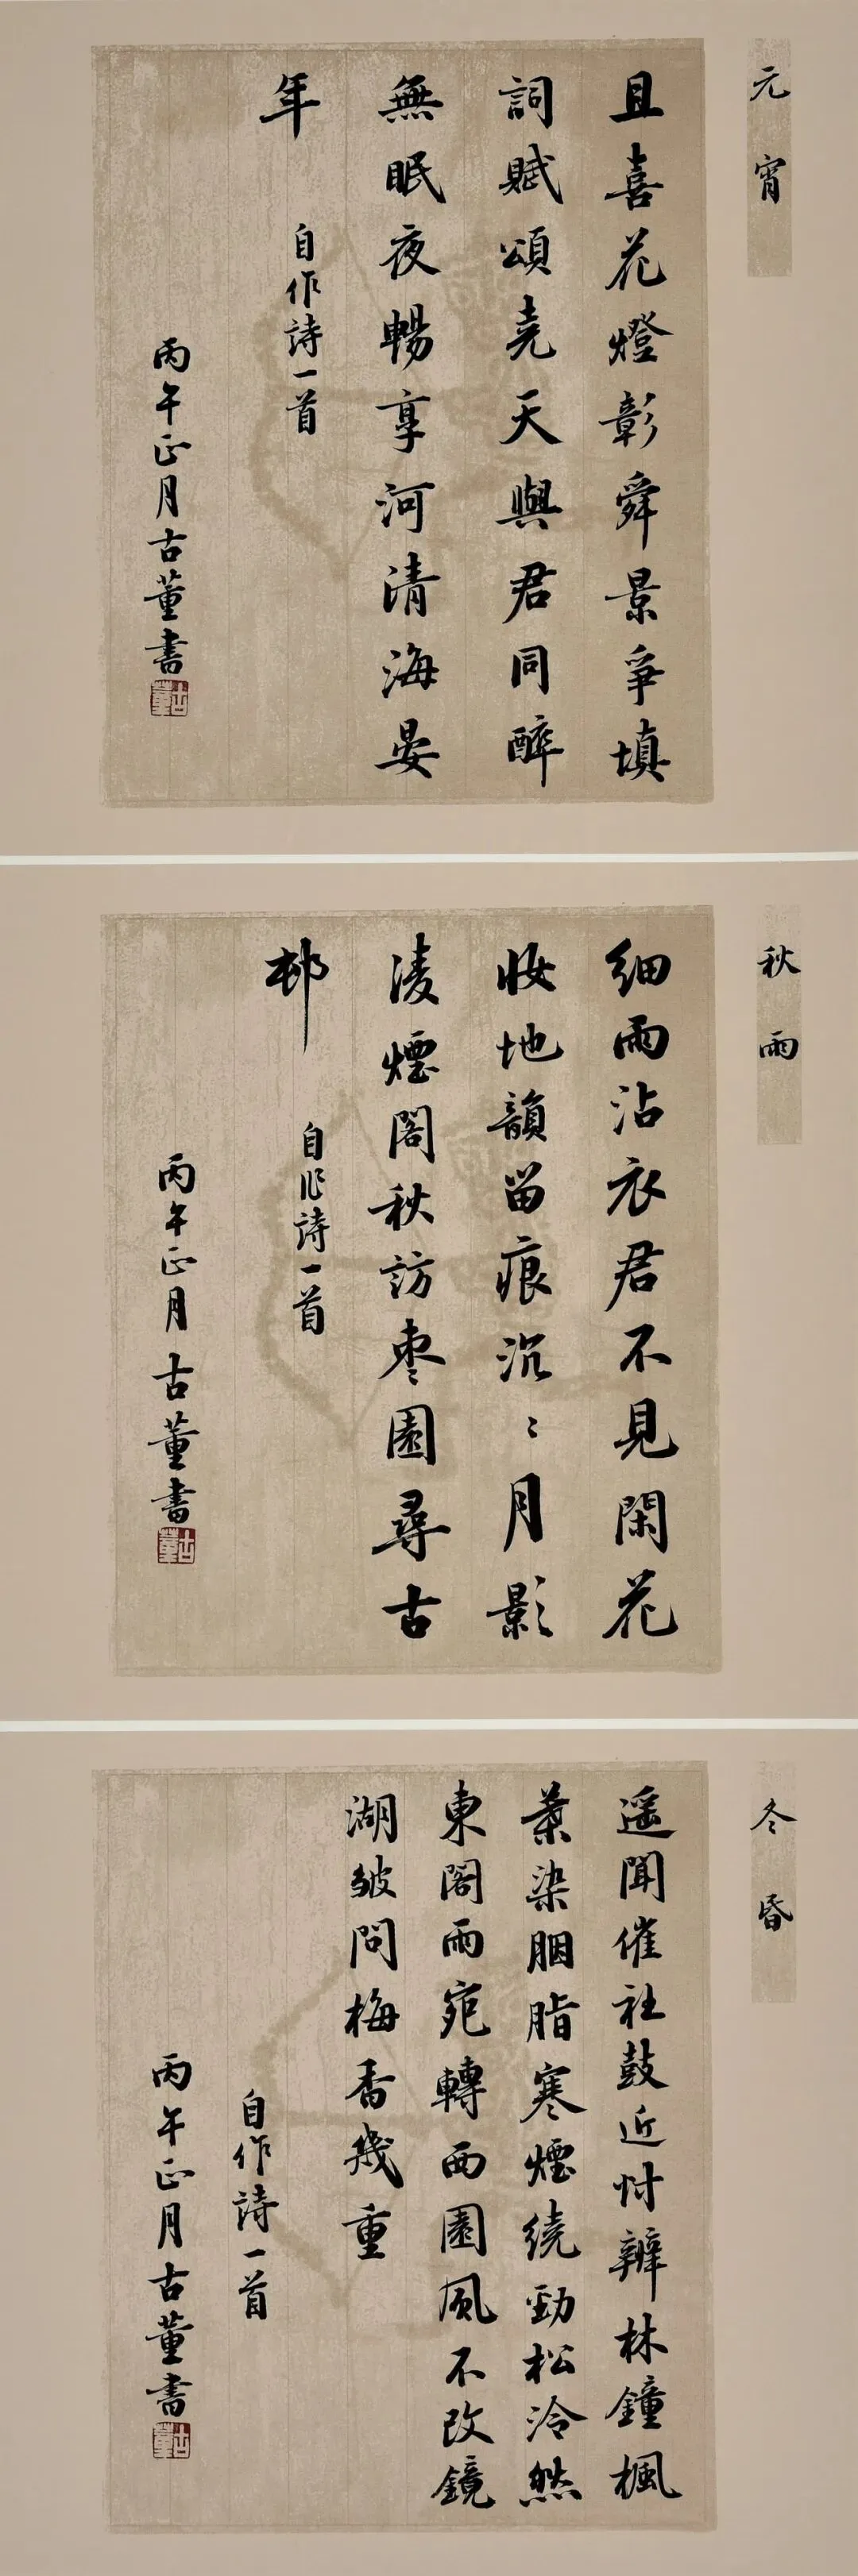 元宵
且喜花燈彰舜景爭填
詞賦頌堯天與君同醉
無眠夜暢享河清海晏
年
自作詩一首
丙午正月古董書
古董
秋雨
細雨沾衣君不見閑花
妝地韻留痕沉〻月影
淩煙閣秋訪棗園尋古
邨
自作詩一首
丙午正月古董書
古董
冬昏
遥聞催社鼓近忖辨林鐘楓
葉染胭脂寒煙繞勁松泠然
東閣雨宛轉西園風不改鏡
湖皱問梅香幾重
自作詩一首
丙午正月古董書
古董